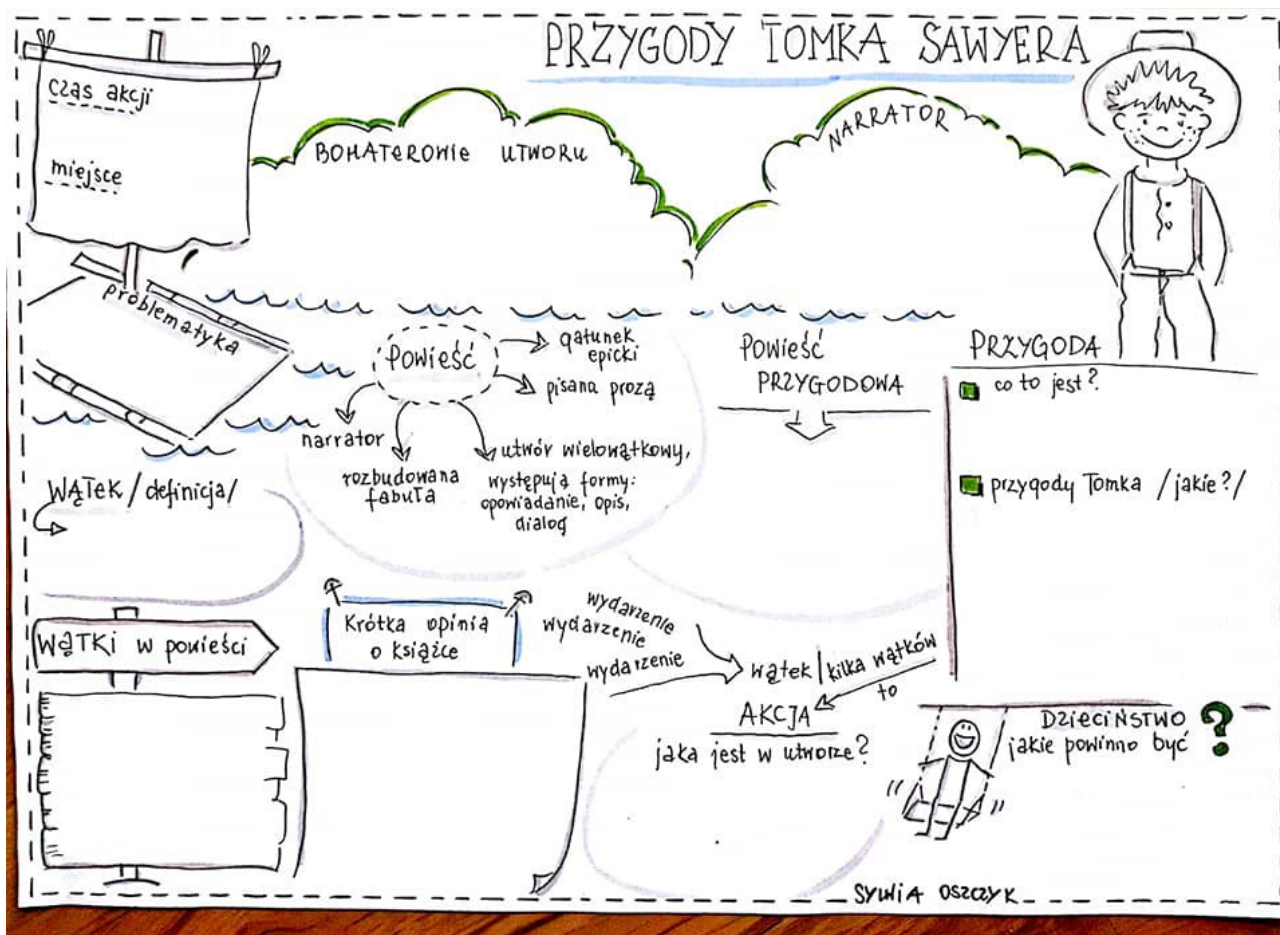 PRZYGODY TOMKA SAWYERA
czas akcji
miejsce
BOHATEROWIE UTWORU
NARRATOR
problematyka
POWIEŚĆ
gatunek
epicki
pisana prozą
narrator
rozbudowana
fabuła
utwór wielowątkowy,
występują formy:
opowiadanie, opis,
dialog
POWIEŚĆ
PRZYGODOWA
PRZYGODA
co to jest?
przygody Tomka /jakie?/
WĄTEK /definicja/
WĄTKI w powieści
Krótka opinia
o książce
wydarzenie
wydarzenie
wydarzenie
wątek / kilka wątków
to
AKCJA
jaka jest w utworze?
DZIECIŃSTWO
jakie powinno być ?
SYLWIA OSZCZYK